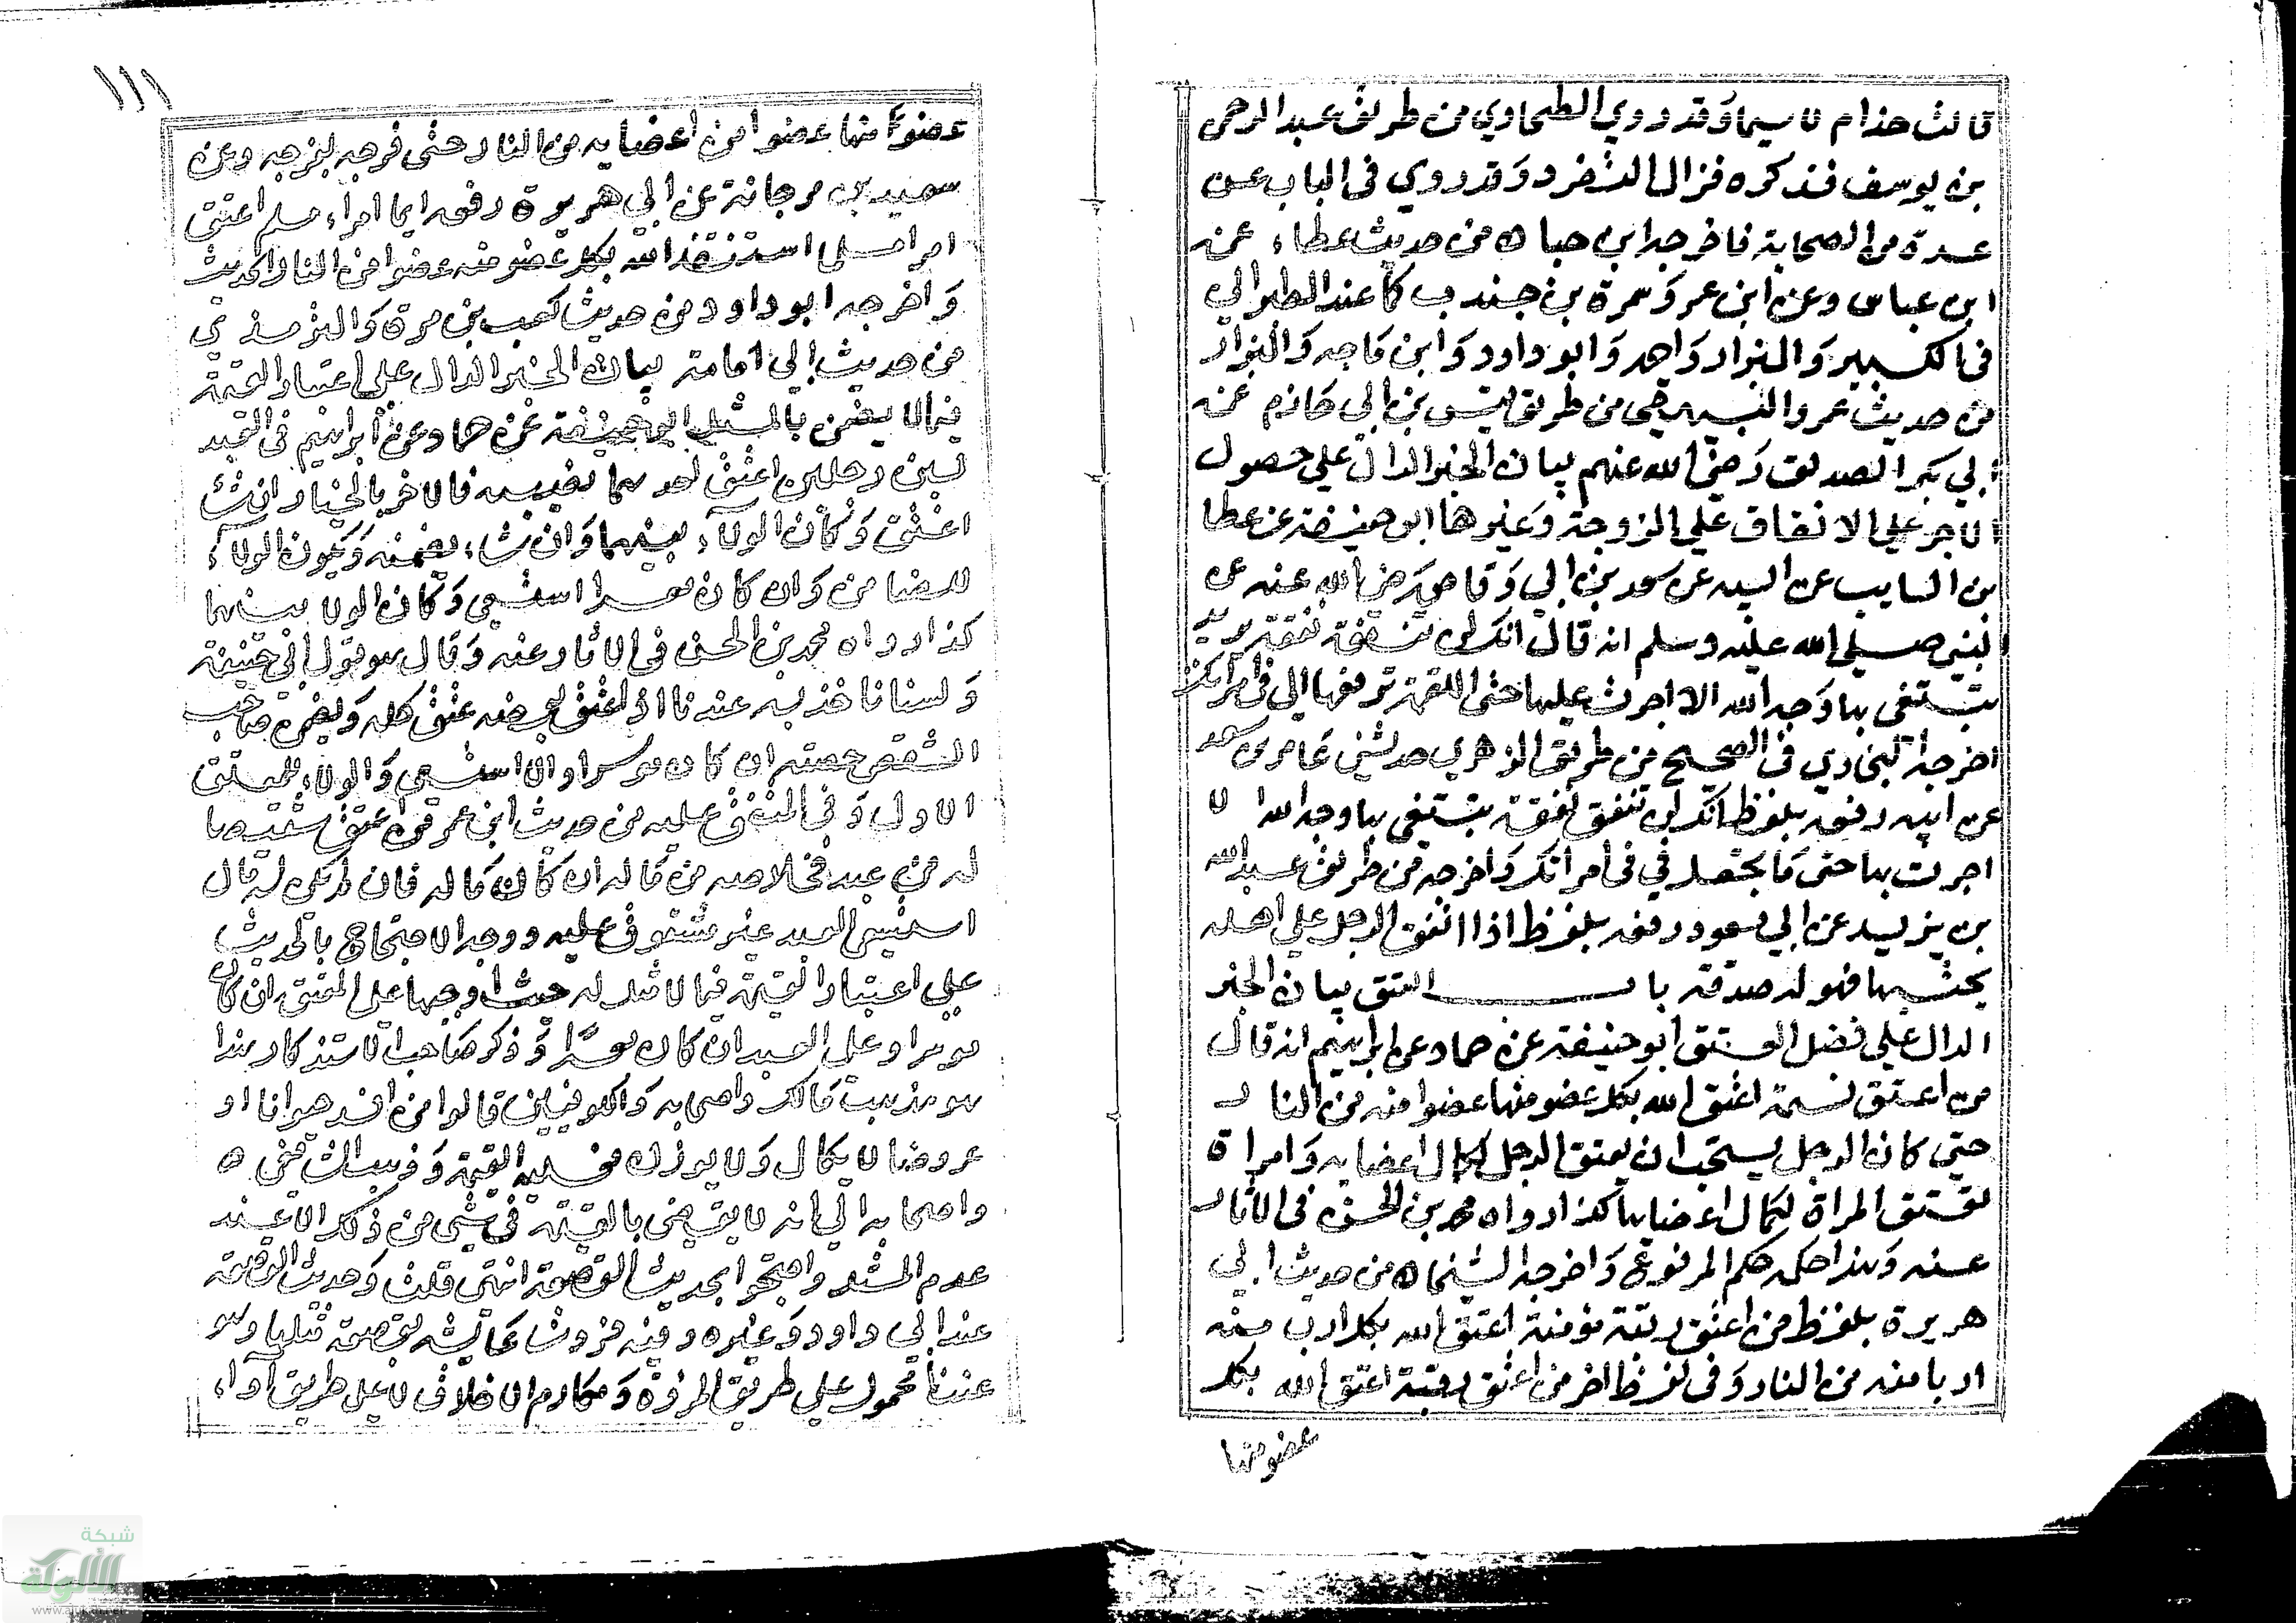 قالت حذام لا سيما وقد روي الطحاوي من طريق عبد الرحمن
بن يوسف فذكره فزال التفرد وقد روي في الباب عن
عدة من الصحابة فاخرجه ابن حبان من حديث عطاء عن
ابن عباس وعن ابن عمر وسمرة بن جندب كما عند الطبراني
في الكبير والبزار واحمد وابو داود وابن ماجه والبزار
من حديث عمر والبيهقي من طريق قيس بن ابي حازم عن
ابي بكر الصديق رضي الله عنهم بيان الخبر الدال علي حصول
الاجر علي الانفاق علي الزوجة وغيرها ابو حنيفة عن عطا
بن السايب عن ابيه عن سعد بن ابي وقاص رضي الله عنه عن
النبي صلي الله عليه وسلم انه قال انك لن تنفق نفقة تريد
تبتغي بها وجه الله الا اجرت عليها حتى اللقمة ترفعها الي في امراتك
اخرجه البخاري في الصحيح من طريق الزهري حدثني عامر بن سعد
عن ابيه رفعه بلفظ انك لن تنفق نفقة تبتغي بها وجه الله الا
اجرت بها حتى ما تجعل في في امراتك واخرجه من طريق عبد الله
بن يزيد عن ابي مسعود رفعه بلفظ اذا انفق الرجل علي اهله
يحتسبها فهو له صدقة باب العتق بيان الخبر
الدال علي فضل العتق ابو حنيفة عن حماد عن ابراهيم انه قال
من اعتق نسمة اعتق الله بكل عضو منها عضوا منه من النار
حتى كان الرجل يستحب ان يعتق الرجل لكمال اعضايه وامراة
تعتق المراة لكمال اعضايها كذا رواه محمد بن الحسن في الاثار
عنه وهذا حكمه حكم المرفوع واخرجه الشيخان من حديث ابي
هريرة بلفظ من اعتق رقبة مؤمنة اعتق الله بكل ارب منه
اربا منه من النار وفي لفظ اخر من اعتق رقبة اعتق الله بكل
عضو منها
١١١
عضو منها عضوا من اعضايه من النار حتى فرجه بفرجه وعن
سعيد بن مرجانة عن ابي هريرة رفعه ايما امراء مسلم اعتق
امرا مسلما استنقذ الله بكل عضو منه عضوا من النار الحديث
واخرجه ابو داود من حديث كعب بن مرة والترمذي
من حديث ابي امامة بيان الخبر الدال علي اعتبار القيمة
فيما لا يضمن بالمثل ابو حنيفة عن حماد عن ابراهيم في العبد
بين رجلين اعتق احدهما نصيبه فالاخر بالخيار ان شاء
اعتق وكان الولاء بينهما وان شاء يضمنه ويكون الولاء
للضامن وان كان معسرا استسعي وكان الولا بينهما
كذا رواه محمد بن الحسن في الاثار عنه وقال هو قول ابي حنيفة
ولسنا ناخذ به عندنا اذا اعتق بعضه عتق كله ويضمن صاحب
الشقص حصته ان كان موسرا والا استسعي والولاء للمعتق
الاول وفي المتفق عليه من حديث ابن عمر من اعتق شقيصا
له من عبد فخلاصه من ماله ان كان له مال فان لم يكن له مال
استسعي العبد غير مشقوق عليه ووجه الاحتجاج بالحديث
علي اعتبار القيمة فيما لا مثل له حيث اوجبها علي المعتق ان كان
موسرا وعلي العبد ان كان معسرا وذكر صاحب الاستذكار هذا
هو مذهب مالك واصحابه والكوفيين قالوا من افسد حيوانا او
عروضا لا يكال ولا يوزن فعليه القيمة وذهب الشافعي
واصحابه الي انه لا يقضي بالقيمة في شي من ذلك الا عند
عدم المثل واحتجوا بحديث القصعة انتهى قلت وحديث القصعة
عند ابي داود وغيره وفيه فردت عايشه بقصعة مثلها وهو
عندنا محمول علي طريق المروة ومكارم الاخلاق لا علي طريق اداء
شبكة
الألوكة
www.alukah.net